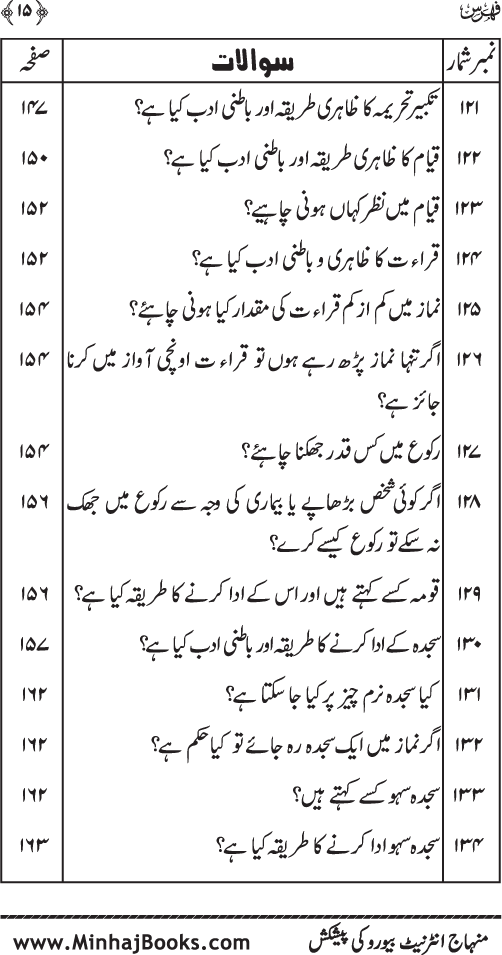 فہرس ﴿۱۵﴾
نمبر شمار سوالات صفحہ
۱۲۱ تکبیر تحریمہ کا ظاہری طریقہ اور باطنی ادب کیا ہے؟ ۱۴۷
۱۲۲ قیام کا ظاہری طریقہ اور باطنی ادب کیا ہے؟ ۱۵۰
۱۲۳ قیام میں نظر کہاں ہونی چاہیے؟ ۱۵۲
۱۲۴ قراءت کا ظاہری و باطنی ادب کیا ہے؟ ۱۵۲
۱۲۵ نماز میں کم از کم قراءت کی مقدار کیا ہونی چاہئے؟ ۱۵۴
۱۲۶ اگر تنہا نماز پڑھ رہے ہوں تو قراءت اونچی آواز میں کرنا ۱۵۴
جائز ہے؟
۱۲۷ رکوع میں کس قدر جھکنا چاہئے؟ ۱۵۴
۱۲۸ اگر کوئی شخص بڑھاپے یا بیماری کی وجہ سے رکوع میں جھک ۱۵۶
نہ سکے تو رکوع کیسے کرے؟
۱۲۹ قومہ کسے کہتے ہیں اور اس کے ادا کرنے کا طریقہ کیا ہے؟ ۱۵۶
۱۳۰ سجدہ کے ادا کرنے کا طریقہ اور باطنی ادب کیا ہے؟ ۱۵۷
۱۳۱ کیا سجدہ نرم چیز پر کیا جا سکتا ہے؟ ۱۶۲
۱۳۲ اگر نماز میں ایک سجدہ رہ جائے تو کیا حکم ہے؟ ۱۶۲
۱۳۳ سجدہ سہو کسے کہتے ہیں؟ ۱۶۲
۱۳۴ سجدہ سہو ادا کرنے کا طریقہ کیا ہے؟ ۱۶۳
منہاج انٹرنیٹ بیورو کی پیشکش www.MinhajBooks.com